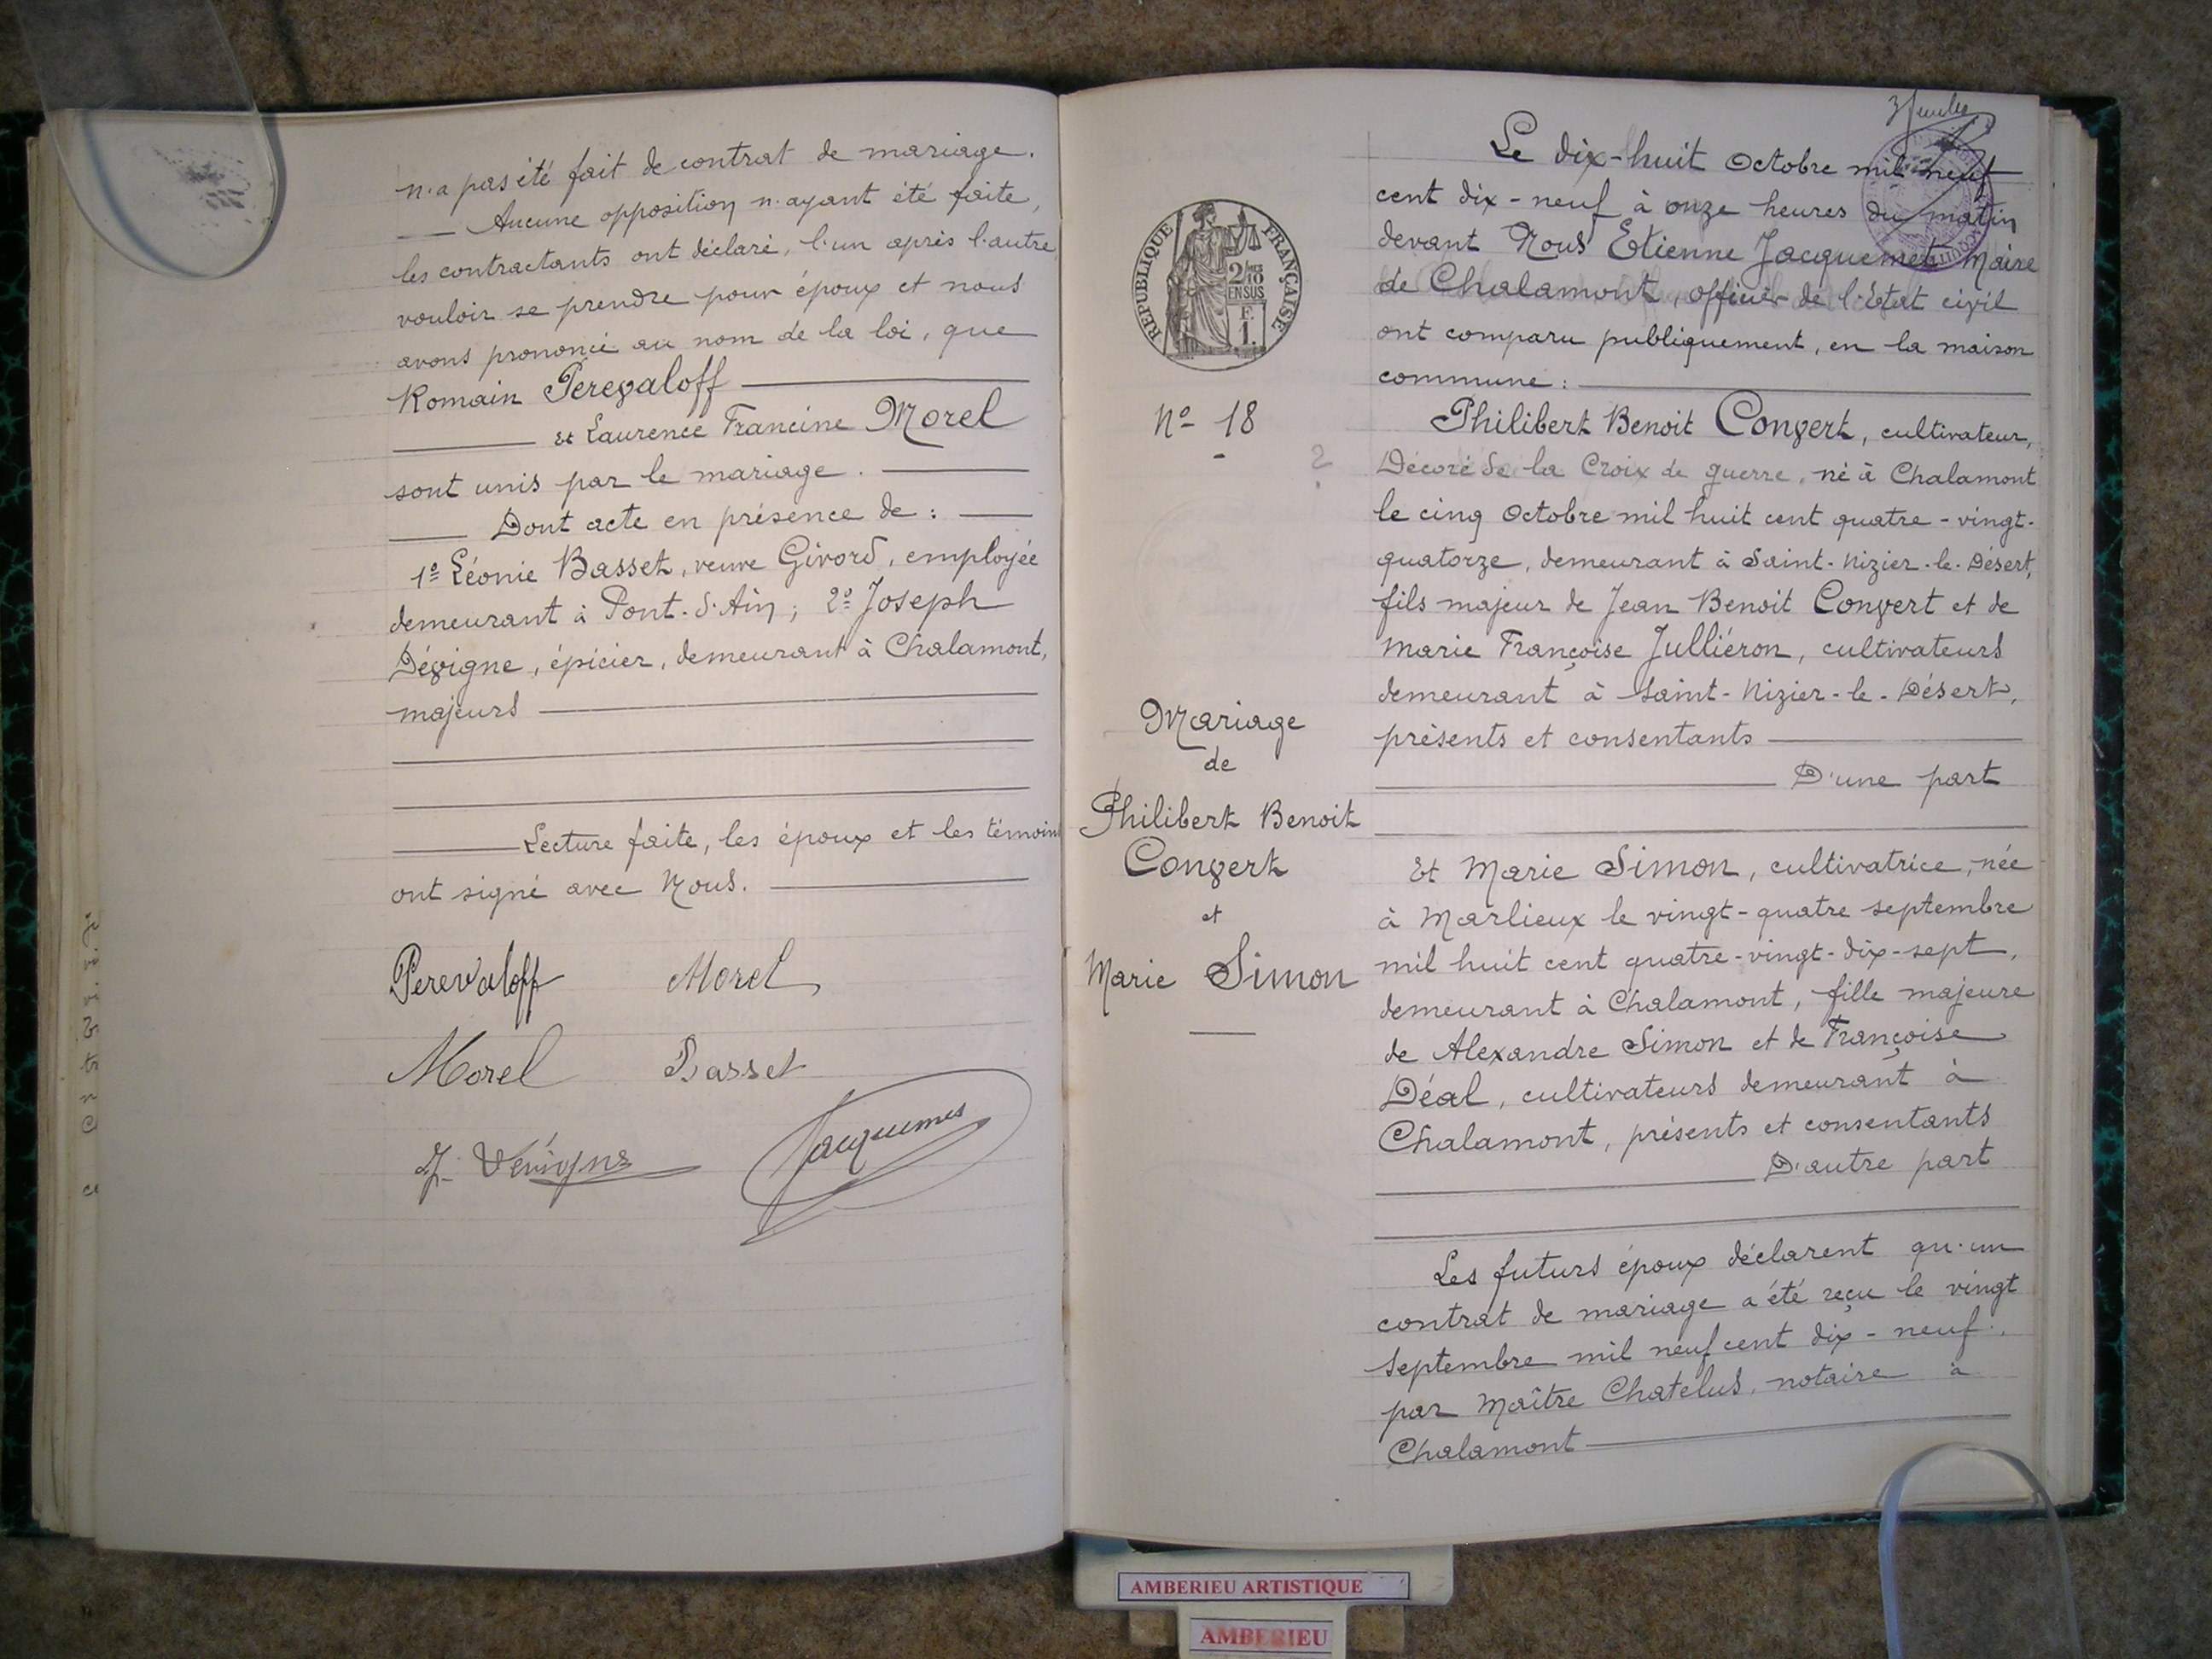 n'a pas été fait de contrat de mariage.
Aucune opposition n'ayant été faite,
les contractants ont déclaré, l'un après l'autre
vouloir se prendre pour époux et nous
avons prononcé au nom de la loi, que
Romain Perevaloff
et Laurence Francine Morel
sont unis par le mariage.
Dont acte en présence de :
1º Léonie Basset, veuve Givord, employée
demeurant à Pont-d'Ain ; 2º Joseph
Dévigne, épicier, demeurant à Chalamont,
majeurs
Lecture faite, les époux et les témoins
ont signé avec Nous.
Perevaloff Morel
Morel Basset
J. Dévigne Jacquemet
REPUBLIQUE FRANÇAISE
2/10
EN SUS
F.
1.
Nº 18
Mariage
de
Philibert Benoit
Convert
et
Marie Simon
Le dix-huit Octobre mil neuf
cent dix-neuf à onze heures du matin
devant Nous Etienne Jacquemet Maire
de Chalamont, officier de l'état civil
ont comparu publiquement, en la maison
commune :
Philibert Benoit Convert, cultivateur,
Décoré de la Croix de guerre, né à Chalamont
le cinq Octobre mil huit cent quatre-vingt-
quatorze, demeurant à Saint-Nizier-le-Désert,
fils majeur de Jean Benoit Convert et de
Marie Françoise Julliéron, cultivateurs
demeurant à Saint-Nizier-le-Désert,
présents et consentants
D'une part
Et Marie Simon, cultivatrice, née
à Marlieux le vingt-quatre septembre
mil huit cent quatre-vingt-dix-sept,
demeurant à Chalamont, fille majeure
de Alexandre Simon et de Françoise
Déal, cultivateurs demeurant à
Chalamont, présents et consentants
D'autre part
Les futurs époux déclarent qu'un
contrat de mariage a été reçu le vingt
septembre mil neuf cent dix-neuf.
par Maître Chatelus, notaire à
Chalamont
AMBERIEU ARTISTIQUE
AMBERIEU